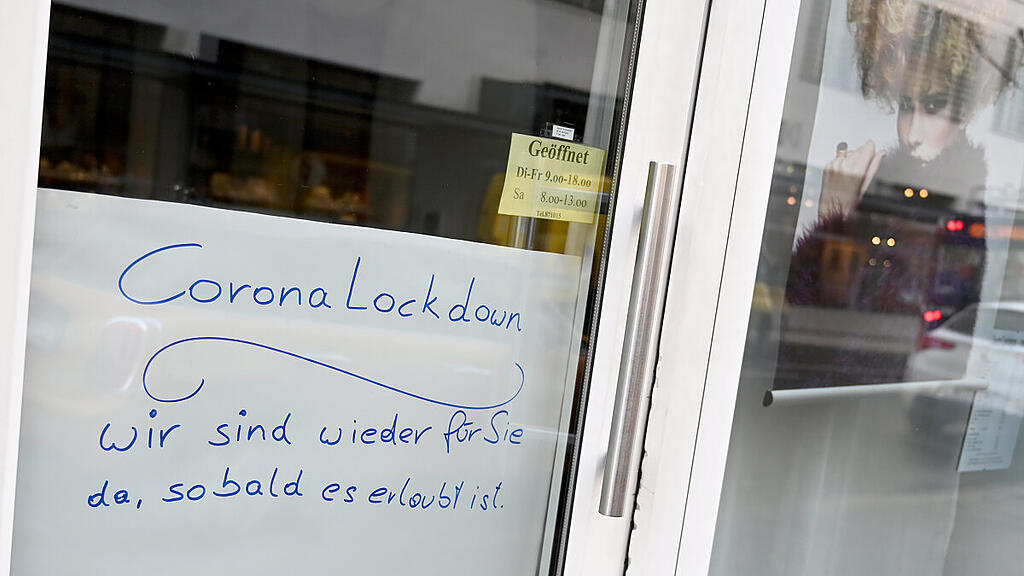 Geöffnet
Di-Fr 9.00-18.00
Sa 8.00-13.00
Tel.871015
Corona Lockdown
wir sind wieder für Sie
da, sobald es erlaubt ist.